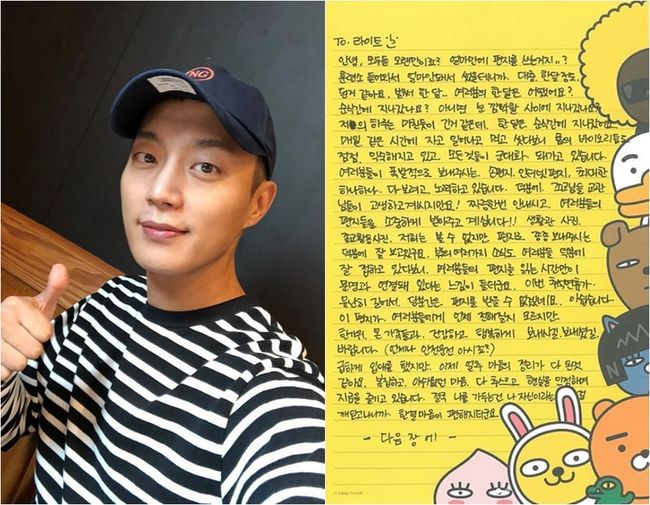 NG
To. 라이트
안녕, 모두들 오랜만이죠? 얼마만에 편지를 쓰는거지..?
훈련소 들어와서 얼마안돼서 썼을테니까. 대충 한달정도
된거 같아요. 벌써 한달.. 여러분의 한달은 어땠어요?
순식간에 지나갔나요? 아니면 눈 깜빡할 사이에 지나갔나요?
하루는 긴거 같은데, 한달은 순식간에
매일 같은 시간에 자고 일어나고 먹고 싸다보니 몸의 바이오리듬도
점점 익숙해지고 있고 모든것들이 군대화 돼가고 있습니다
여러분들이 폭발적으로 보내주시는 손편지, 인터넷편지, 최대한
하나하나 다 보려고 노력하고 있습니다. 덕분에 교관
님들이 고생하고계시지만요! 짜증한번 안내시고 여러분들의
편지들을 소중하게 계십니다!! 생활관 사진,
종교활동사진, 저희는 볼 수 없지만 편지로 종종 보내주시는
덕분에 잘 보고있구요. 밖의 여러가지 소식도 여러분들 덕분에
잘 접하고 있다보니, 여러분들의 편지를 읽는 시간만이
문명과 연결돼 있다는 느낌이 들더군요. 이번 추석연휴가
유난히 길어서, 당분간은 편지를 받을 수 없겠네요. 아쉽습니다
이 편지가 여러분들에게 언제 전해질지 모르지만
한가위, 온 가족들과 건강하고 행복하게 보내시길
바랍니다 (언제나 안전운전 아시죠?)
급하게 입대를 했지만, 이제 얼추 마음의 정리가 다 된것
같아요. 복잡하고, 아쉬웠던 마음, 다 현실을 인정하며
지금을 즐기고 있습니다. 결국 나를 가두는건 나 자신이라는 걸
깨닫고나니까 한결 마음이 편해지더군요.
- 다음 장에 -